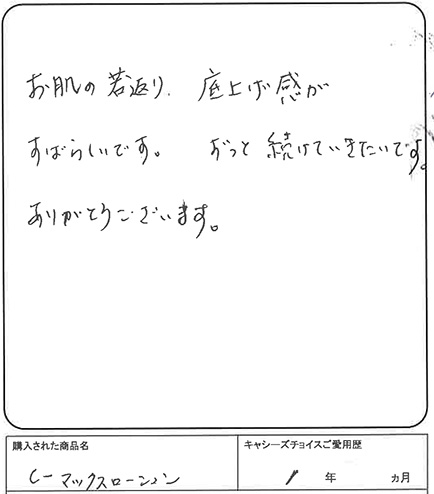 お肌の若返り、底上げ感が
すばらしいです。ずっと続けていきたいです。
ありがとうございます。
購入された商品名
キャシーズチョイスご愛用歴
シーマックスローション
1年 ヵ月